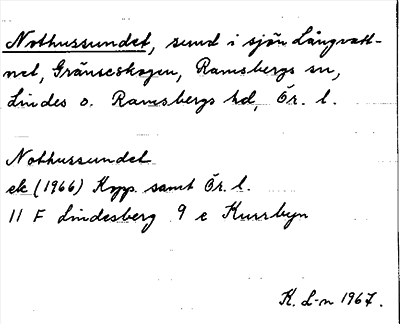 Nothussundet, sund i sjön Långvatt-
net, Gränsskogen, Ramsbergs sn,
Lindes o. Ramsbergs hd, Ör. l.
Nothussundet
ek (1966) Kopp. samt Ör. l.
11 F Lindesberg 9 c Kurrbyn
K. L-n 1967.